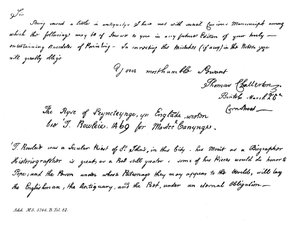 Sir
Being versed a little in antiquitys, I have met with several Curious Manuscripts among
which the following may be of Service to you, in any future Edition of your truly
entertaining Anecdotes of Painting. In correcting the Mistakes (if any) in the Notes you
will greatly oblige
Your most humble Servant
Thomas Chatterton
Bristol March 25th
Corn Street
The Ryse of Peyncteynge, yn Englade, wroten
bie T. Rowleie. 1469 for Mastre Canynge
T. Rowleie was a Secular Priest of St. John's, in this City. his Merit as a Biographer
Historiographer is great, as a Poet still greater. some of his Pieces would do honor to
Pope; and the Person under whose Patronage they may appear to the World, will lay
the Englishman, the Antiquary, and the Poet, under an eternal Obligation
Add. MS. 5766. B. fol.